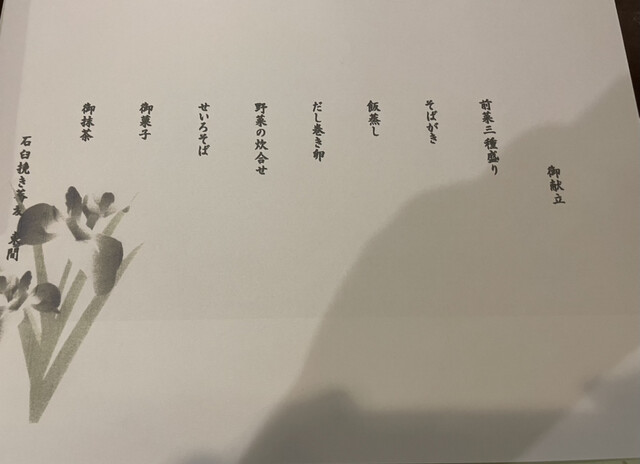 御献立
前菜三種盛り
そばがき
飯蒸し
だし巻き卵
野菜の炊合せ
せいろそば
御菓子
御抹茶
石臼挽き蕎麦